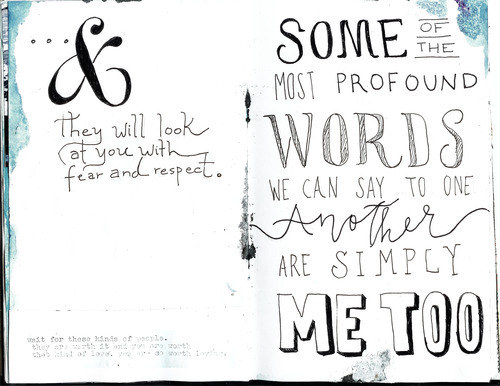 ...&
they will look
at you with
fear and respect.
wait for these kinds of people.
they are worth it and you are worth
that kind of love. you are so worth loving.
SOME OF THE
MOST PROFOUND
WORDS
WE CAN SAY TO ONE
Another
ARE SIMPLY
ME TOO